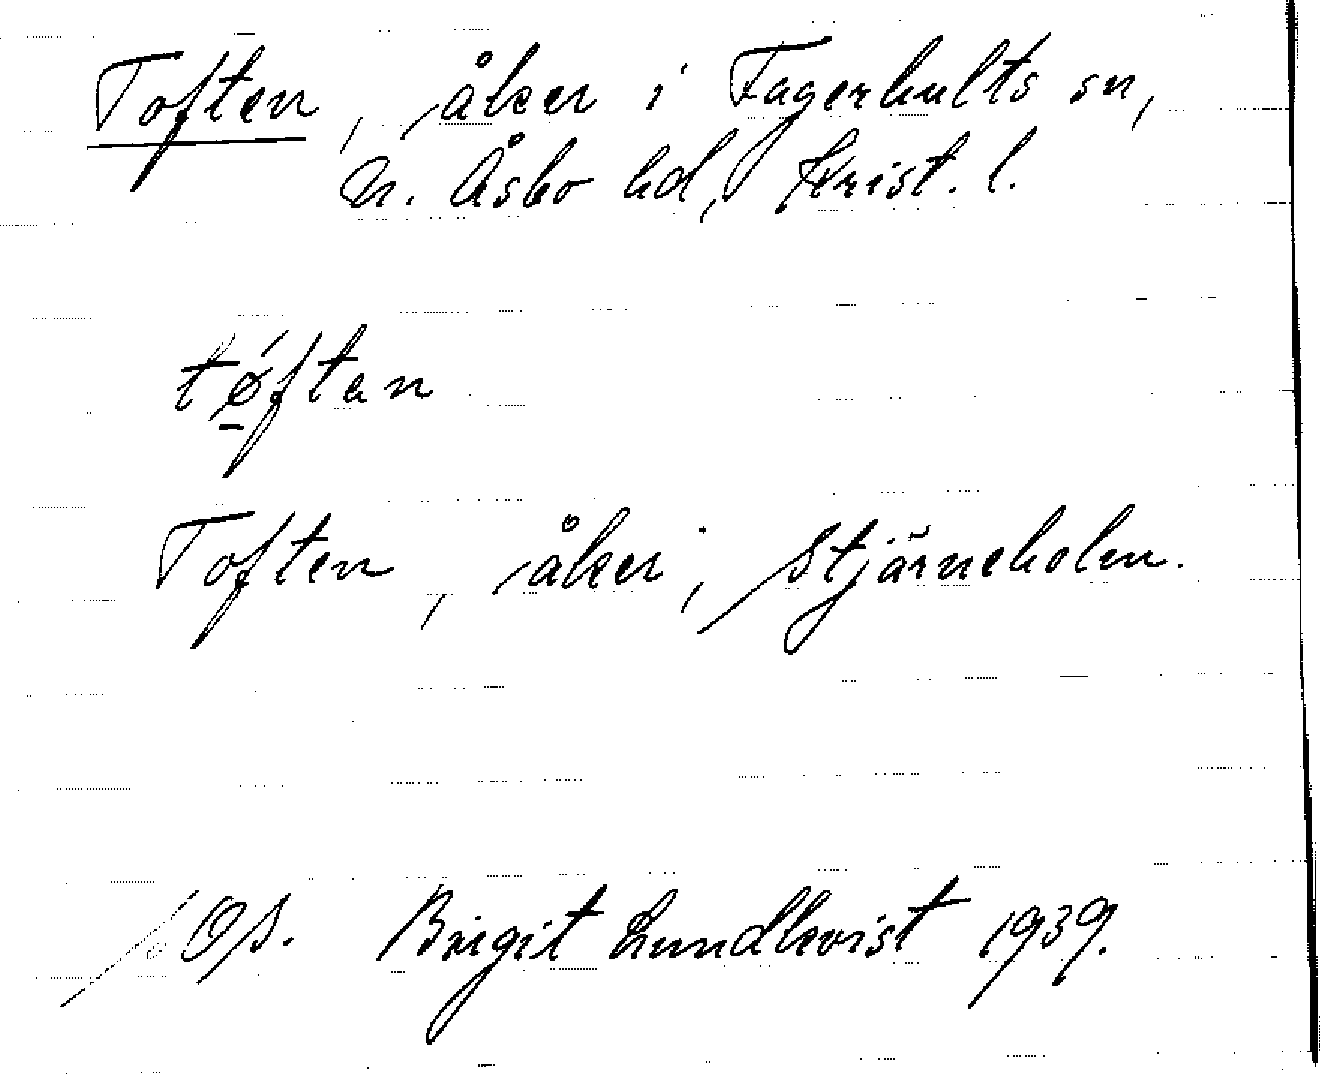 Toften, åker i Fagerhults sn,
N. Åsbo hd, Krist. l.
tǿ̱ftan
Toften, åker, Stjärneholm.
Os. Birgit Lundkvist 1939.